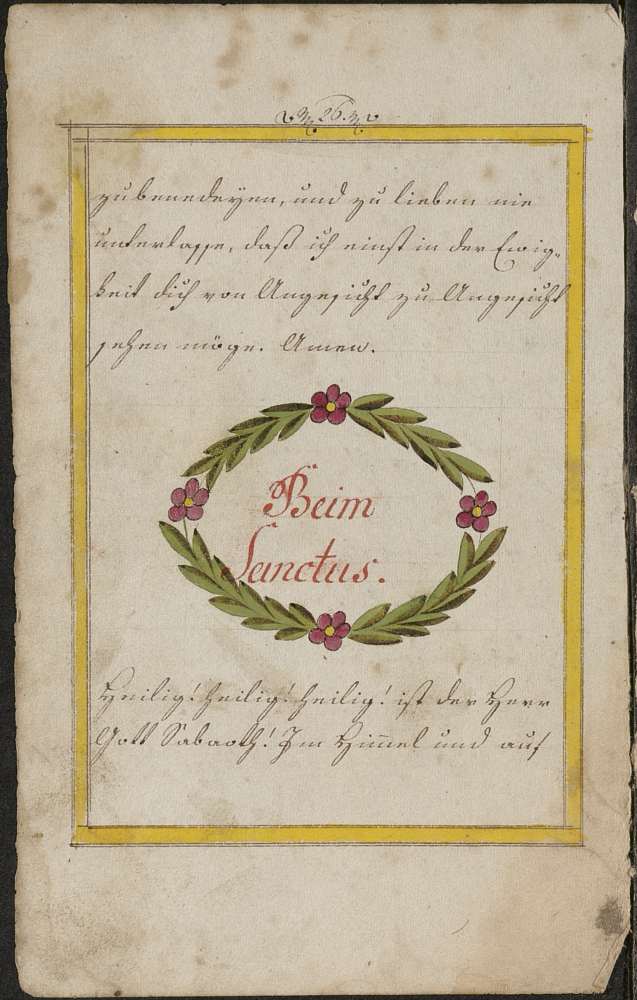 26.
zu benedeyen, und zu lieben nie
unterlasse, daß ich einst in der Ewig-
keit dich von Angesicht zu Angesicht
sehen möge. Amen.
Beim
Sanctus.
Heilig! heilig! heilig! ist der Herr
Gott Sabaoth! Im Him̄el und auf